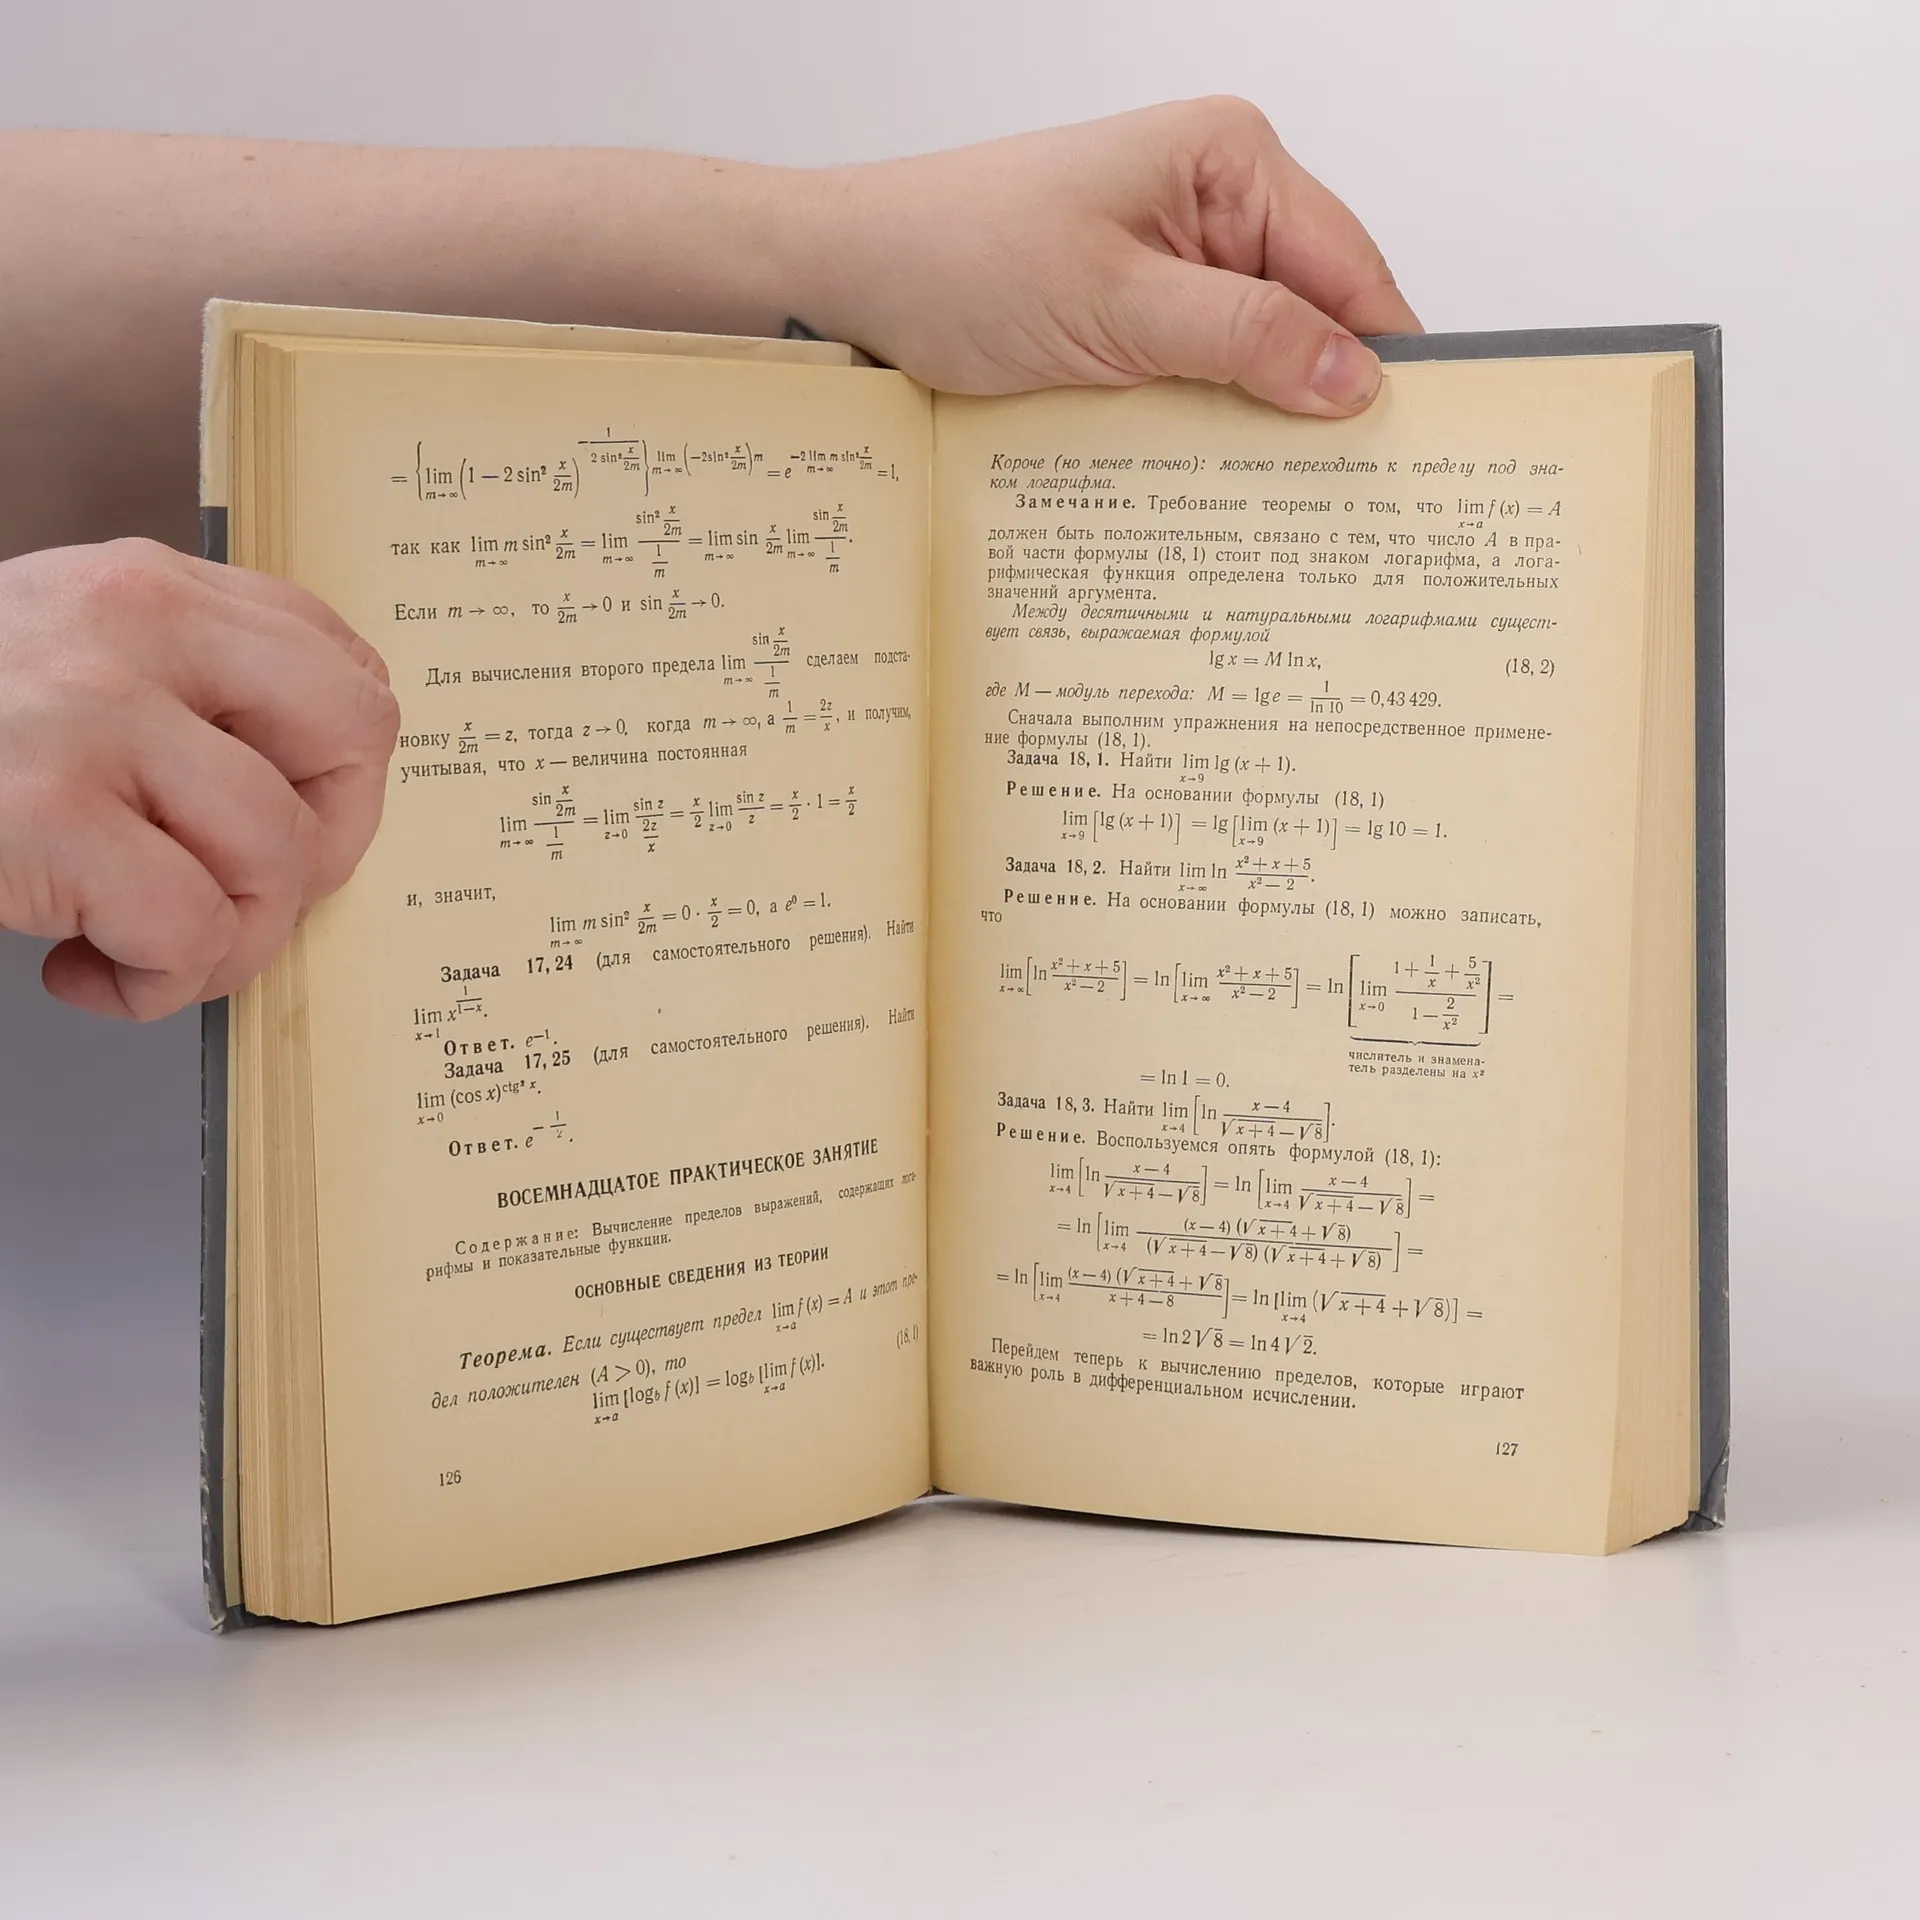 = {lim m→∞ (1 — 2 sin² x/2m)^(— 1/(2 sin² x/2m))}^(lim m→∞ (—2sin² x/2m)m) = e^(—2 lim m→∞ m sin² x/2m) = 1,
так как lim m→∞ m sin² x/2m = lim m→∞ (sin² x/2m)/(1/m) = lim m→∞ sin x/2m lim m→∞ (sin x/2m)/(1/m).
Если m → ∞, то x/2m → 0 и sin x/2m → 0.
Для вычисления второго предела lim m→∞ (sin x/2m)/(1/m) сделаем подста-
новку x/2m = z, тогда z → 0, когда m → ∞, а 1/m = 2z/x, и получим,
учитывая, что x — величина постоянная
lim m→∞ (sin x/2m)/(1/m) = lim z→0 (sin z)/(2z/x) = x/2 lim z→0 (sin z)/z = x/2 · 1 = x/2
и, значит,
lim m→∞ m sin² x/2m = 0 · x/2 = 0, а e⁰ = 1.
Задача 17, 24 (для самостоятельного решения). Найти
lim x→1 x^(1/(1—x)).
Ответ. e⁻¹.
Задача 17, 25 (для самостоятельного решения). Найти
lim x→0 (cos x)^(ctg² x).
Ответ. e^(— 1/2).
ВОСЕМНАДЦАТОЕ ПРАКТИЧЕСКОЕ ЗАНЯТИЕ
Содержание: Вычисление пределов выражений, содержащих лога-
рифмы и показательные функции.
ОСНОВНЫЕ СВЕДЕНИЯ ИЗ ТЕОРИИ
Теорема. Если существует предел lim x→a f (x) = A и этот пре-
дел положителен (A > 0), то
lim x→a [log_b f (x)] = log_b [lim x→a f (x)]. (18, 1)
126
Короче (но менее точно): можно переходить к пределу под зна-
ком логарифма.
Замечание. Требование теоремы о том, что lim x→a f (x) = A
должен быть положительным, связано с тем, что число A в пра-
вой части формулы (18, 1) стоит под знаком логарифма, а лога-
рифмическая функция определена только для положительных
значений аргумента.
Между десятичными и натуральными логарифмами сущест-
вует связь, выражаемая формулой
lg x = M ln x, (18, 2)
где M — модуль перехода: M = lg e = 1/ln 10 = 0,43 429.
Сначала выполним упражнения на непосредственное примене-
ние формулы (18, 1).
Задача 18, 1. Найти lim x→9 lg (x + 1).
Решение. На основании формулы (18, 1)
lim x→9 [lg (x + 1)] = lg [lim x→9 (x + 1)] = lg 10 = 1.
Задача 18, 2. Найти lim x→∞ ln (x² + x + 5)/(x² — 2).
Решение. На основании формулы (18, 1) можно записать,
что
lim x→∞ [ln (x² + x + 5)/(x² — 2)] = ln [lim x→∞ (x² + x + 5)/(x² — 2)] = ln [lim x→0 (1 + 1/x + 5/x²)/(1 — 2/x²)] =
числитель и знамена-
тель разделены на x²
= ln 1 = 0.
Задача 18, 3. Найти lim x→4 [ln (x — 4)/(√x + 4 — √8)].
Решение. Воспользуемся опять формулой (18, 1):
lim x→4 [ln (x — 4)/(√x + 4 — √8)] = ln [lim x→4 (x — 4)/(√x + 4 — √8)] =
= ln [lim x→4 (x — 4) (√x + 4 + √8)/(√x + 4 — √8) (√x + 4 + √8)] =
= ln [lim x→4 (x — 4) (√x + 4 + √8)/(x + 4 — 8)] = ln [lim x→4 (√x + 4 + √8)] =
= ln 2√8 = ln 4√2.
Перейдем теперь к вычислению пределов, которые играют
важную роль в дифференциальном исчислении.
127